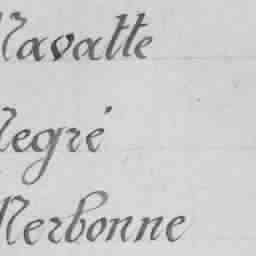 Navatte
Negré
Nerbonne